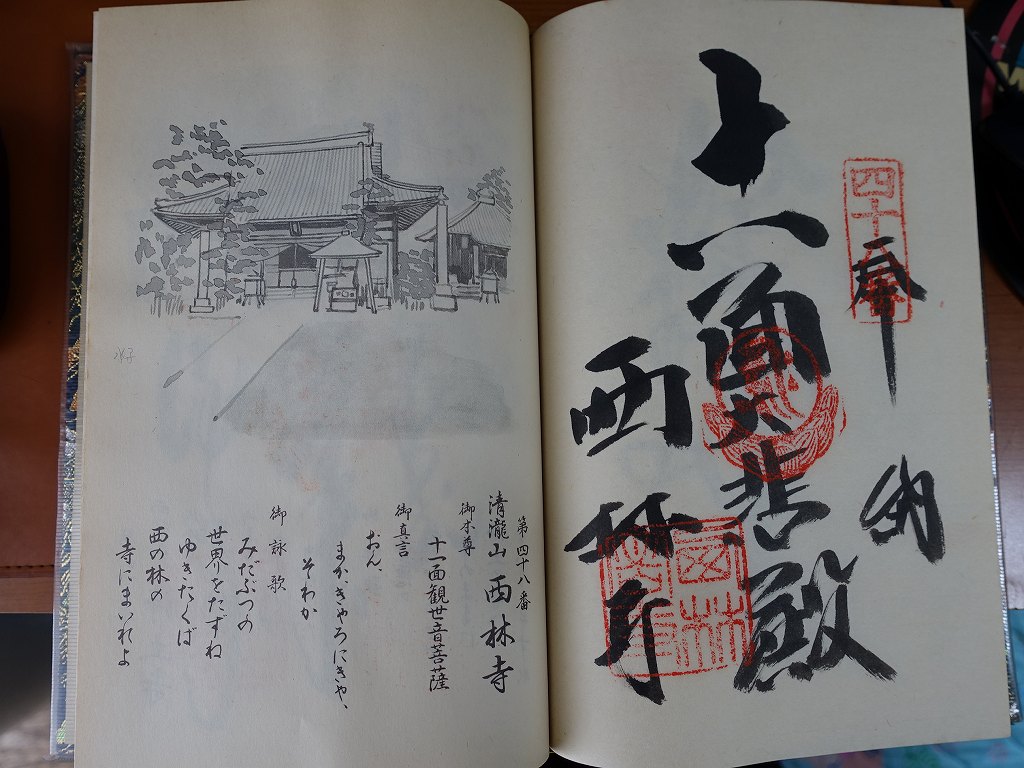 四十八番
奉納
十一面大悲殿
西林寺
第四十八番
清瀧山 西林寺
御本尊
十一面観世音菩薩
御真言
おん、
まか、きゃろにきや、
そわか
御詠歌
みだぶつの
世界をたずね
ゆきたくば
西の林の
寺にまいれよ